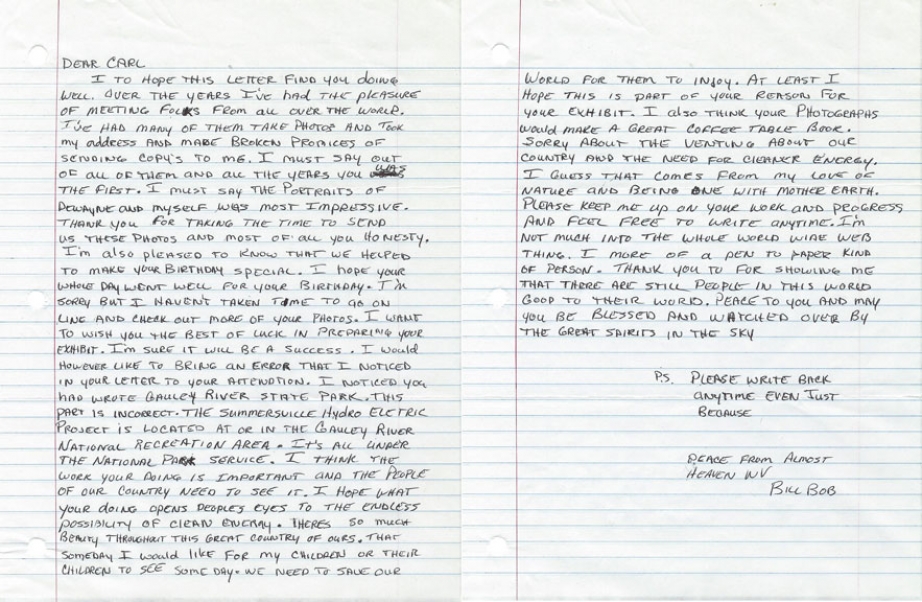 DEAR CARL
I TO HOPE THIS LETTER FIND YOU DOING
WELL. OVER THE YEARS I'VE HAD THE PLEASURE
OF MEETING FOLKS FROM ALL OVER THE WORLD.
I'VE HAD MANY OF THEM TAKE PHOTOS AND TOOK
MY ADDRESS AND MADE BROKEN PROMICES OF
SENDING COPY'S TO ME. I MUST SAY OUT
OF ALL OF THEM AND ALL THE YEARS YOU WAS
THE FIRST. I MUST SAY THE PORTRAITS OF
DEWAYNE AND MYSELF WAS MOST IMPRESSIVE.
THANK YOU FOR TAKING THE TIME TO SEND
US THESE PHOTOS AND MOST OF ALL YOU HONESTY.
I'M ALSO PLEASED TO KNOW THAT WE HELPED
TO MAKE YOUR BIRTHDAY SPECIAL. I HOPE YOUR
WHOLE DAY WENT WELL FOR YOUR BIRTHDAY. I'M
SORRY BUT I HAVEN'T TAKEN TIME TO GO ON
LINE AND CHECK OUT MORE OF YOUR PHOTOS. I WANT
TO WISH YOU THE BEST OF LUCK IN PREPARING YOUR
EXHIBIT. I'M SURE IT WILL BE A SUCCESS. I WOULD
HOWEVER LIKE TO BRING AN ERROR THAT I NOTICED
IN YOUR LETTER TO YOUR ATTENOTION. I NOTICED YOU
HAD WROTE GAULEY RIVER STATE PARK. THIS
PART IS INCORRECT. THE SUMMERSVILLE HYDRO ELETRIC
PROJECT IS LOCATED AT OR IN THE GAULEY RIVER
NATIONAL RECREATION AREA. IT'S ALL UNDER
THE NATIONAL PARK SERVICE. I THINK THE
WORK YOUR DOING IS IMPORTANT AND THE PEOPLE
OF OUR COUNTRY NEED TO SEE IT. I HOPE WHAT
YOUR DOING OPENS PEOPLES EYES TO THE ENDLESS
POSSIBILITY OF CLEAN ENERGY. THERES SO MUCH
BEAUTY THROUGHOUT THIS GREAT COUNTRY OF OURS. THAT
SOMEDAY I WOULD LIKE FOR MY CHILDREN OR THEIR
CHILDREN TO SEE SOME DAY. WE NEED TO SAVE OUR
WORLD FOR THEM TO INJOY. AT LEAST I
HOPE THIS IS PART OF YOUR REASON FOR
YOUR EXHIBIT. I ALSO THINK YOUR PHOTOGRAPHS
WOULD MAKE A GREAT COFFEE TABLE BOOK.
SORRY ABOUT THE VENTING ABOUT OUR
COUNTRY AND THE NEED FOR CLEANER ENERGY.
I GUESS THAT COMES FROM MY LOVE OF
NATURE AND BEING ONE WITH MOTHER EARTH.
PLEASE KEEP ME UP ON YOUR WORK AND PROGRESS
AND FEEL FREE TO WRITE ANYTIME. I'M
NOT MUCH INTO THE WHOLE WORLD WIDE WEB
THING. I MORE OF A PEN TO PAPER KIND
OF PERSON. THANK YOU TO FOR SHOWING ME
THAT THERE ARE STILL PEOPLE IN THIS WORLD
GOOD TO THEIR WORD. PEACE TO YOU AND MAY
YOU BE BLESSED AND WATCHED OVER BY
THE GREAT SPIRITS IN THE SKY
P.S. PLEASE WRITE BACK
ANYTIME EVEN JUST
BECAUSE
PEACE FROM ALMOST
HEAVEN WV
BILL BOB